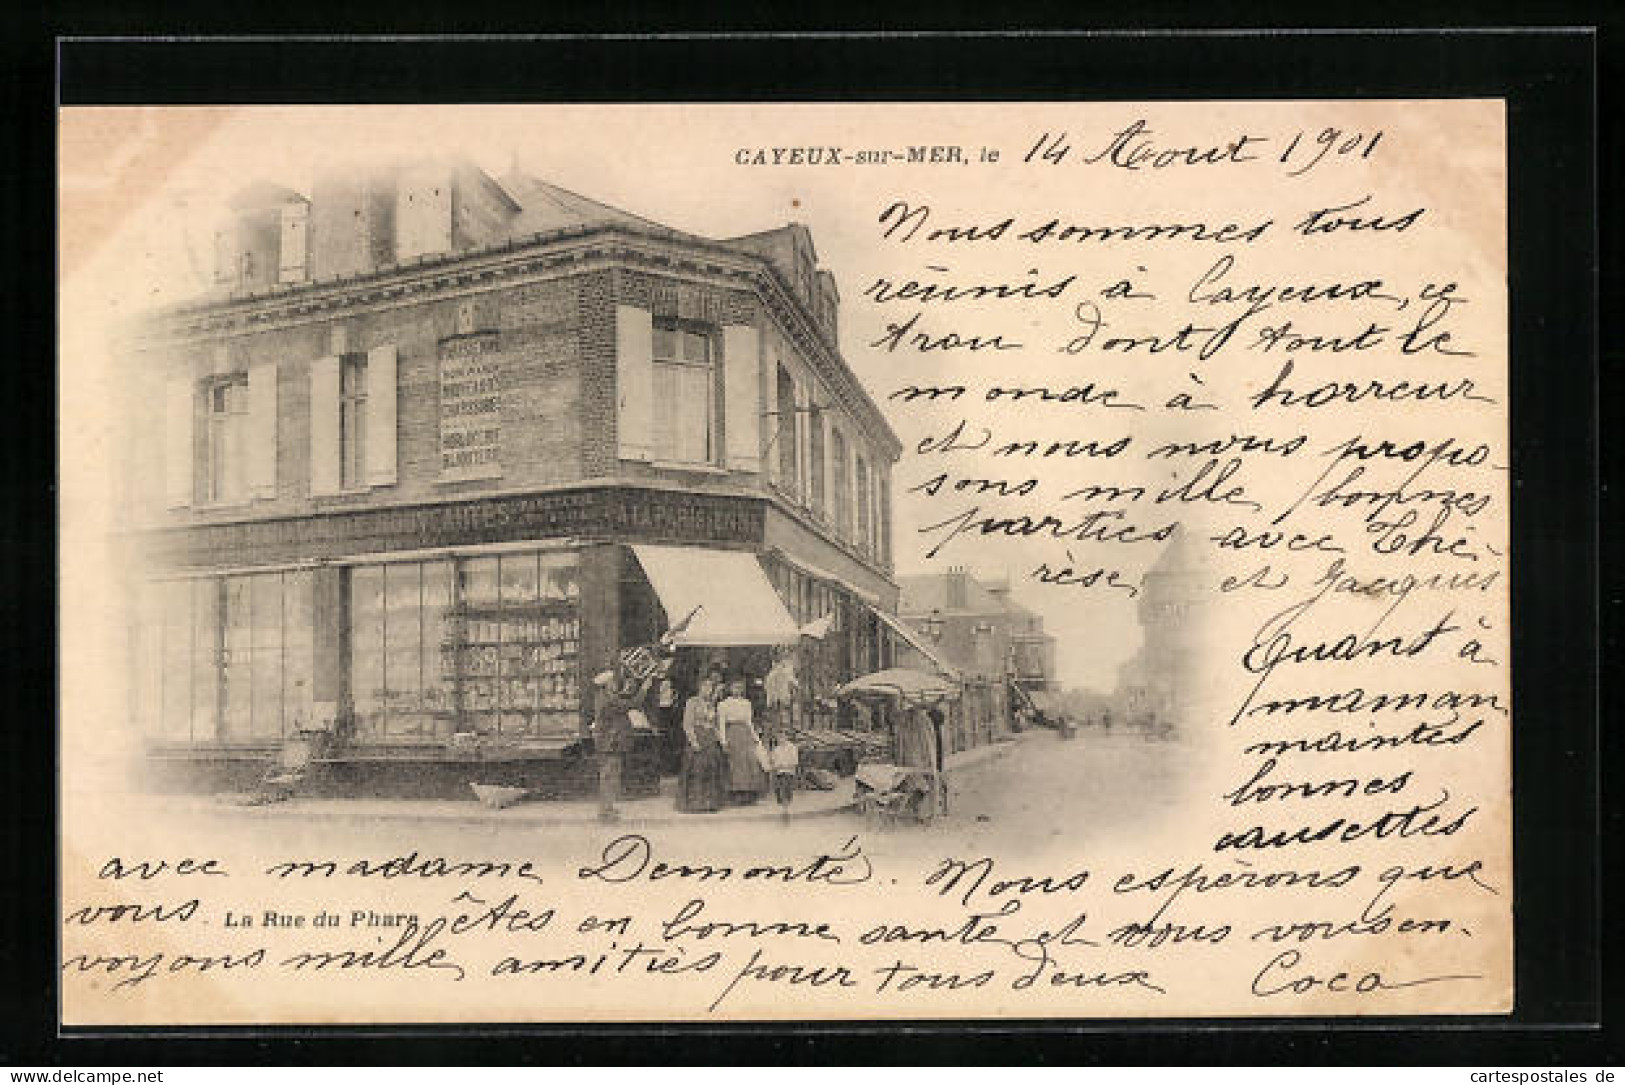 CAYEUX-sur-MER, le 14 Aout 1901
Nous sommes tous
réunis à Cayeux, ce
trou dont tout le
monde à horreur
et nous nous propo-
sons mille bonnes
parties avec Thé-
rèse, et Jacques
Quant à
maman
maintes
bonnes
causettes
avec madame Demonté. Nous espérons que
vous êtes en bonne santé et nous vous en-
La Rue du Phare
voyons mille amitiés pour tous deux Coco
NOUVEAUTES
CHAUSSURES
HORLOGERIE
BIJOUTERIE
A LA PARISIENNE
delcampe.net
cartespostales de